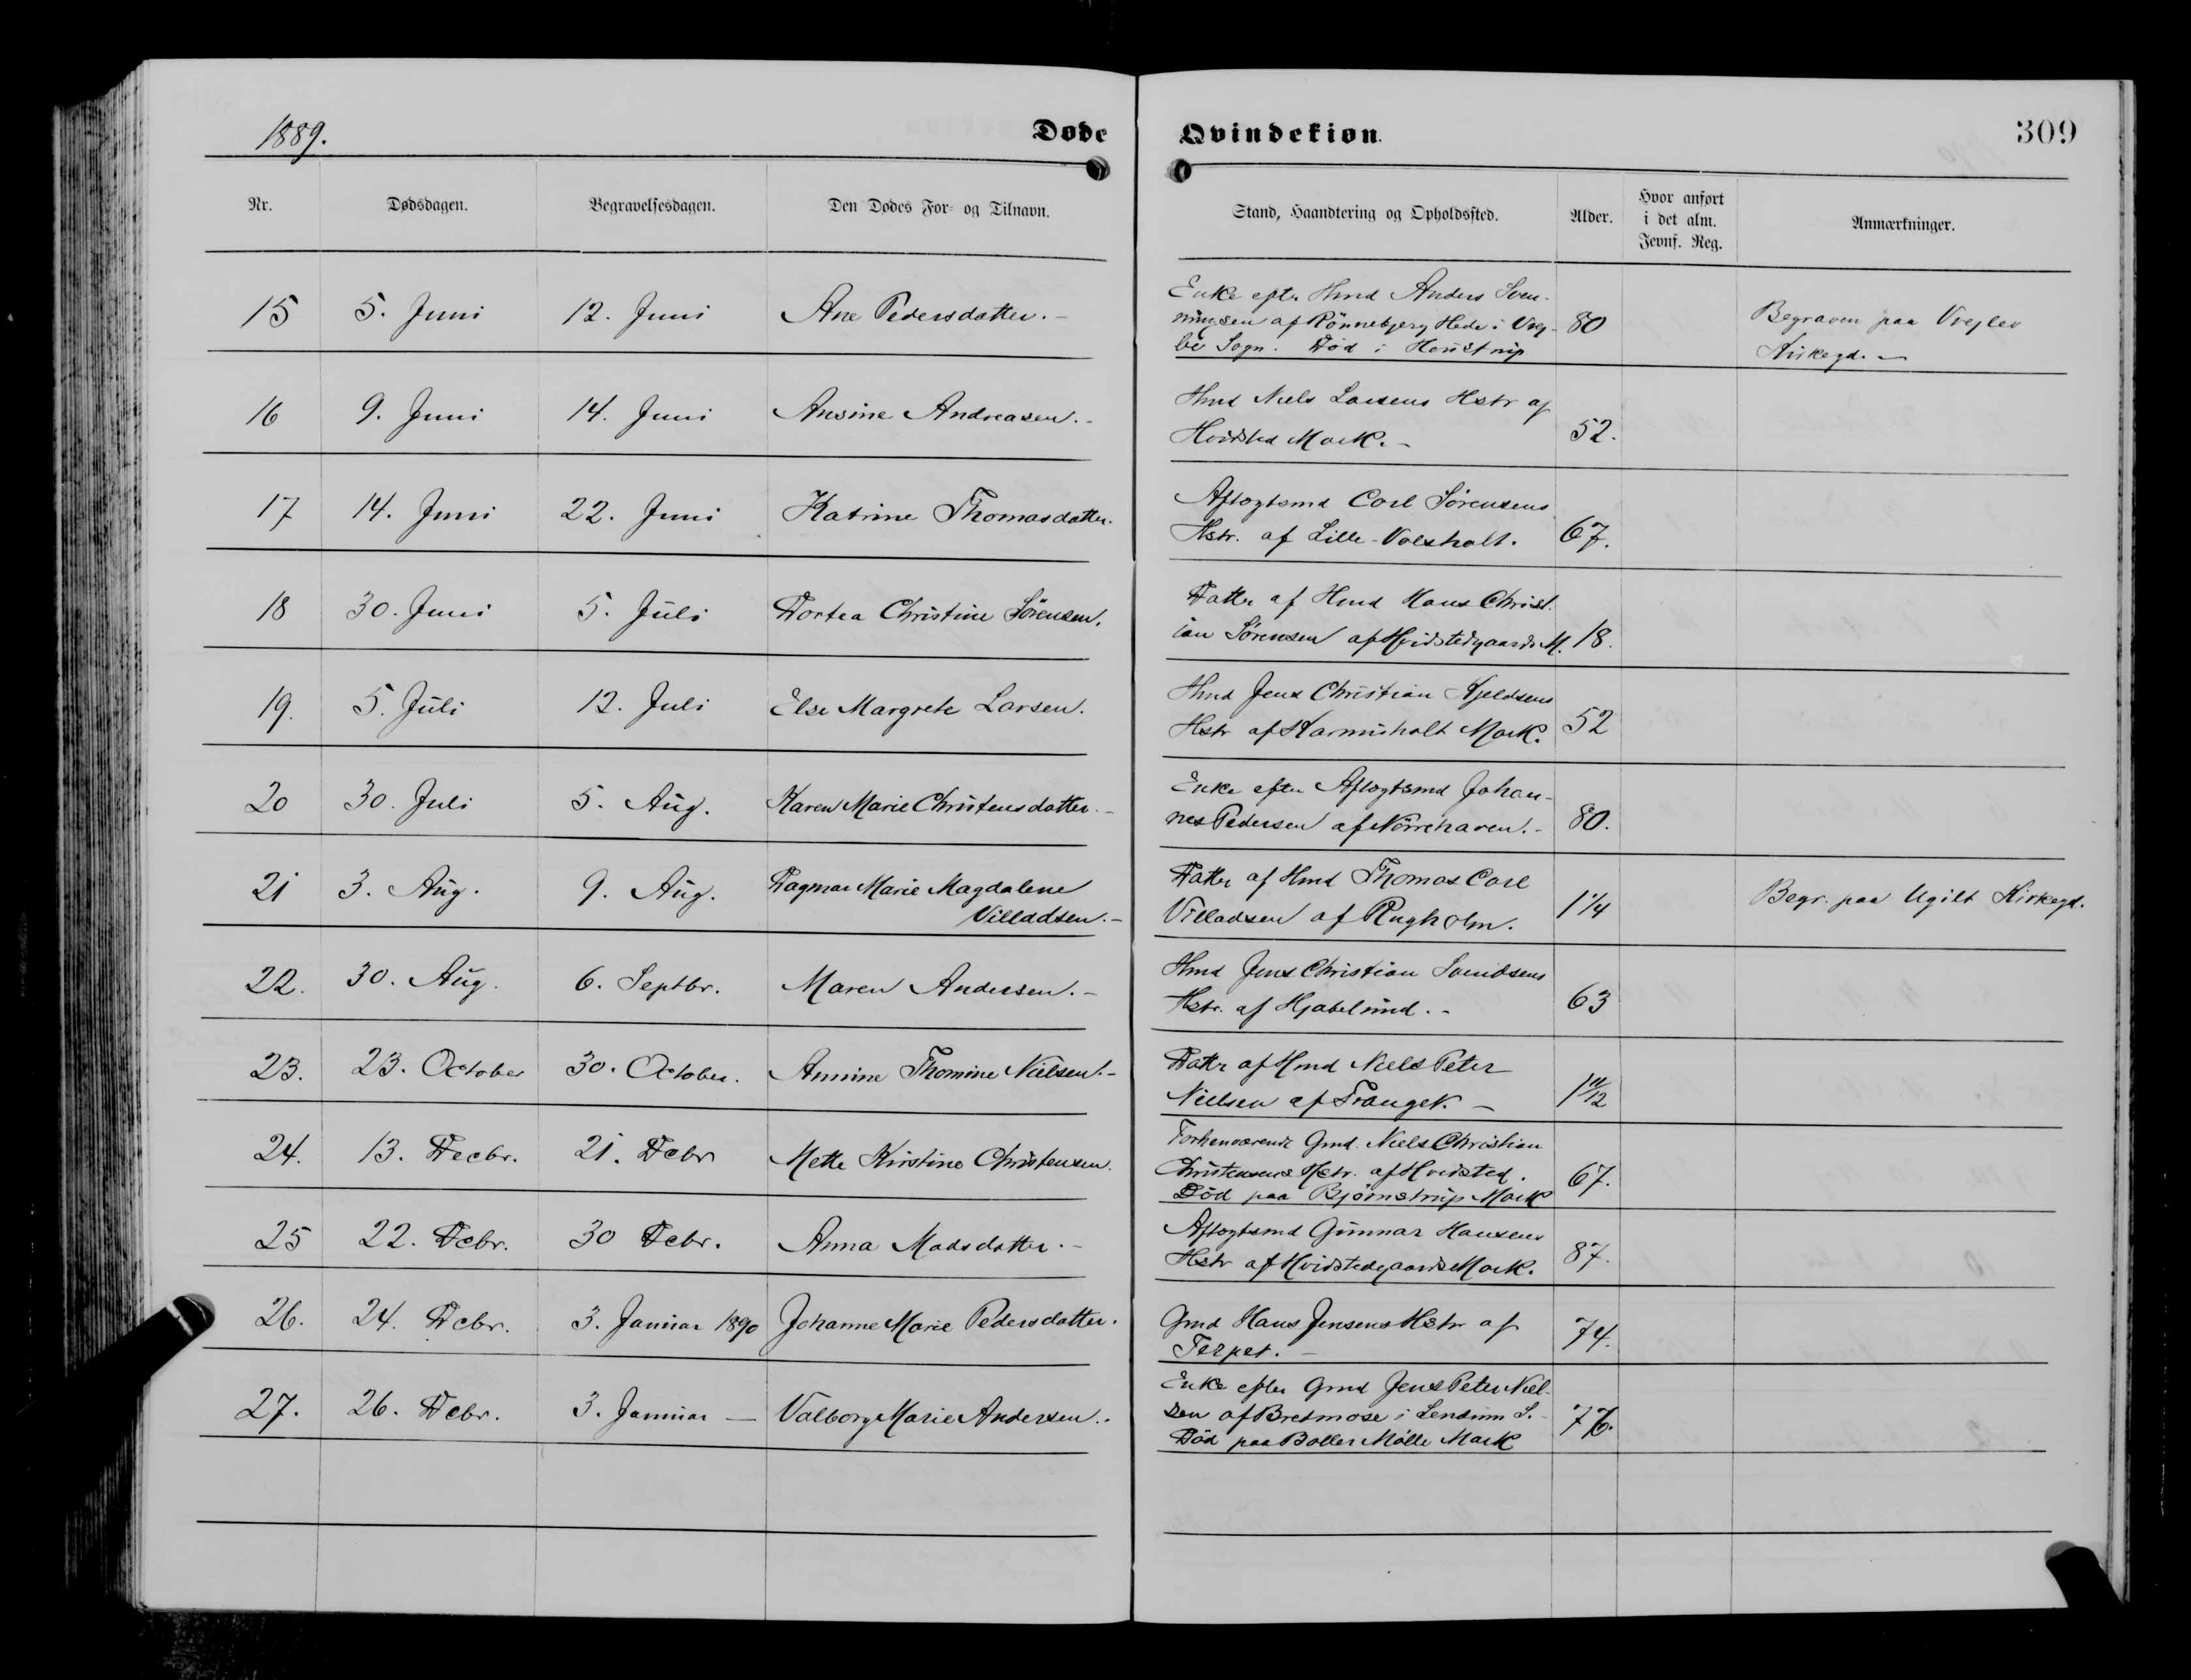 1889.
Døde Qvindekiøn.
309
Nr. Dødsdagen. Begravelsesdagen. Den Dødes For- og Tilnavn. Stand, Haandtering og Opholdssted. Alder. Hvor anført i det alm. Jevnf. Reg. Anmærkninger.
15 5. Juni 12. Juni Ane Pedersdatter. - Enke efter Hmd Anders Sven- 80 Begraven paa Vrejlev
ningsen af Rönnebjerg Hede i Vrej- Kirkegd. -
lev Sogn. Död i
16 9. Juni 14. Juni Ansine Andreasen. - Hmd Niels Larsens Hstr af 52.
Hvidsted Mark. -
17 14. Juni 22. Juni Katrine Thomasdatter. Aftægtsmd Carl Sörensens 67.
Hstr. af Lille-Volsholt.
18 30. Juni 5. Juli Dortea Christine Sörensen. Datter af Hmd Hans Christ- 18.
ian Sörensen af Hvidstedgaards M.
19. 5. Juli 12. Juli Else Margrete Larsen. Hmd Jens Christian Kjeldsens 52
Hstr af Karmisholt Mark.
20 30. Juli 5. Aug. Karen Marie Christensdatter. - Enke efter Aftægtsmd Johan- 80.
nes Pedersen af Nörrehaven. -
21 3. Aug. 9. Aug. Dagmar Marie Magdalene Datter af Hmd Thomas Carl 1 1/4 Begr. paa Ugilt Kirkegd.
Villadsen. - Villadsen af Rugholm.
22. 30. Aug. 6. Septbr. Maren Andersen. - Hmd Jens Christian Svendsens 63
Hstr. af Hjabelund. -
23. 23. October 30. October. Annine Thomine Nielsen. - Datter af Hmd Niels Peter 1 11/12
Nielsen af Tranget. -
24. 13. Decbr. 21. Debr Mette Kirstine Christensen. Forhenværende Gmd. Niels Christian 67.
Christensens Hstr. af Hvidsted.
Död paa Björnstrup Mark
25 22. Debr. 30 Debr. Anna Madsdatter. - Aftægtsmd Gunnar Hansens 87.
Hstr af Hvidstedgaards Mark.
26. 24. Debr. 3. Januar 1890 Johanne Marie Pedersdatter. Gmd Hans Jensens Hstr af 74.
Terpet. -
27. 26. Debr. 3. Januar — Valborg Marie Andersen. - Enke efter Gmd Jens Peter Niel- 76.
sen af Bredmose i Lendum S. -
Död paa Boller Mölle Mark